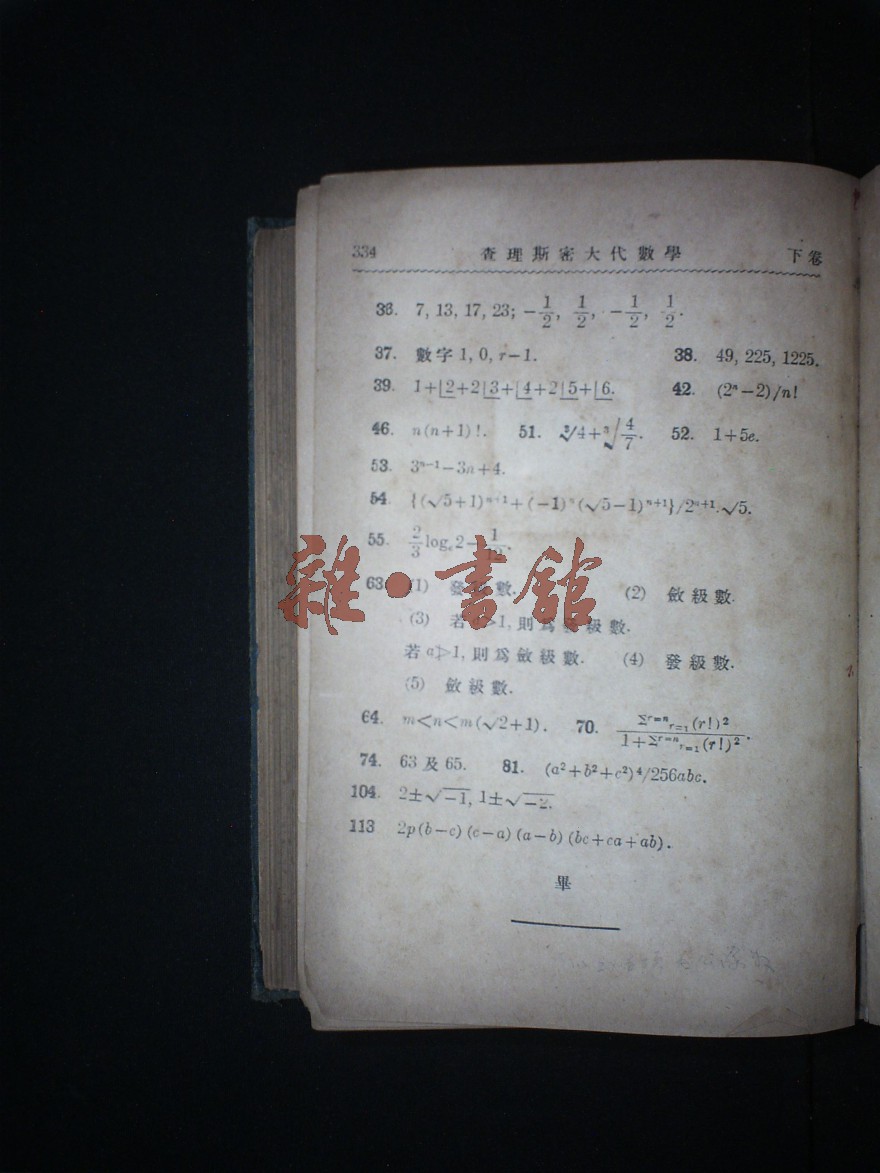 334 查理斯密大代數學 下卷
36. 7, 13, 17, 23; −1/2, 1/2, −1/2, 1/2.
37. 數字 1, 0, r−1. 38. 49, 225, 1225.
39. 1+|2+2|3+|4+2|5+|6. 42. (2ⁿ−2)/n!
46. n(n+1)!. 51. ∛4+∛(4/7). 52. 1+5e.
53. 3ⁿ⁻¹−3n+4.
54. {(√5+1)ⁿ⁺¹+(−1)ⁿ(√5−1)ⁿ⁺¹}/2ⁿ⁺¹.√5.
55. 2/3 logₑ2−1/12.
63. (1) 發級數. (2) 斂級數.
(3) 若 >1, 則爲級數.
若 a≯1, 則爲斂級數. (4) 發級數.
(5) 斂級數.
64. m<n<m(√2+1). 70. Σʳ⁼ⁿᵣ₌₁(r!)²/1+Σʳ⁼ⁿᵣ₌₁(r!)².
74. 63 及 65. 81. (a²+b²+c²)⁴/256abc.
104. 2±√−1, 1±√−2.
113 2p(b−c)(c−a)(a−b)(bc+ca+ab).
畢
雜·書館